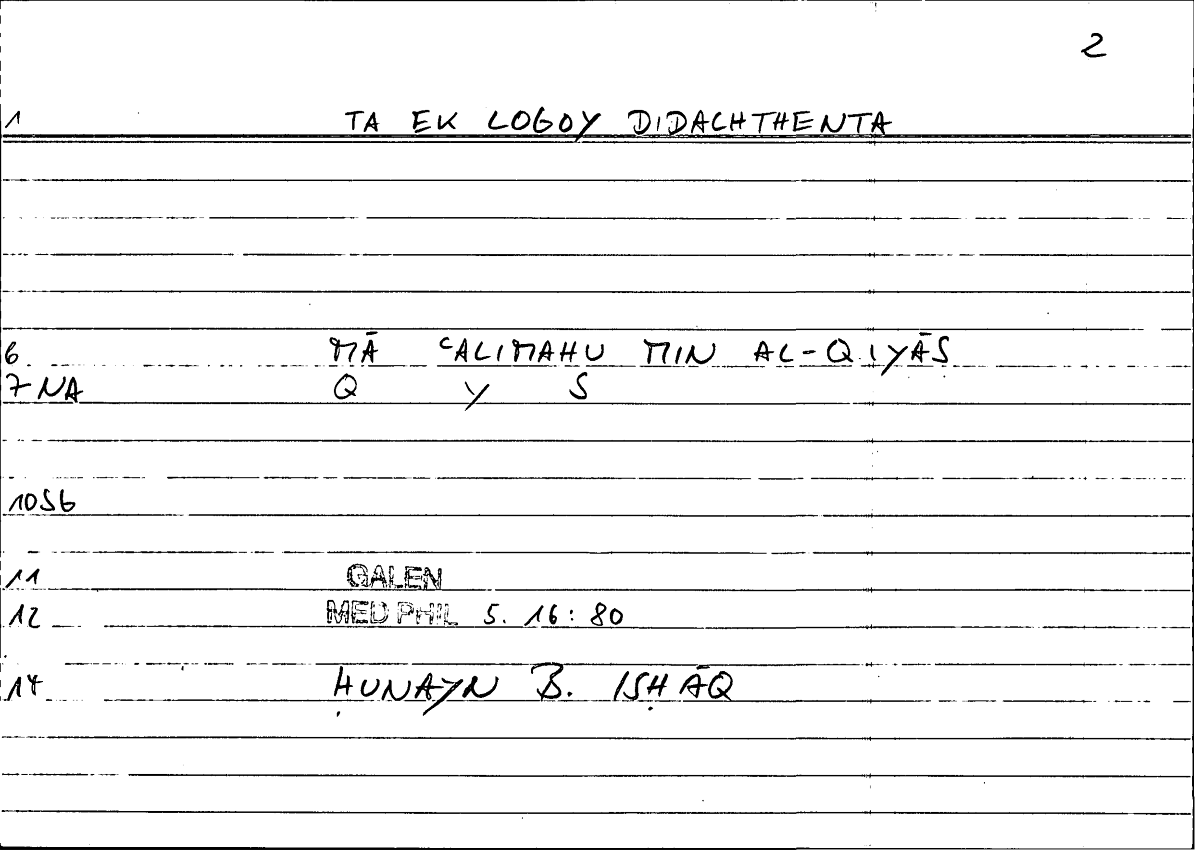 2
1 TA EK LOGOY DIDACHTHENTA
6 MĀ ʿALIMAHU MIN AL-QIYĀS
7 NA Q Y S
10 56
11 GALEN
12 MED PHIL 5. 16: 80
14 ḤUNAYN B. ISḤĀQ